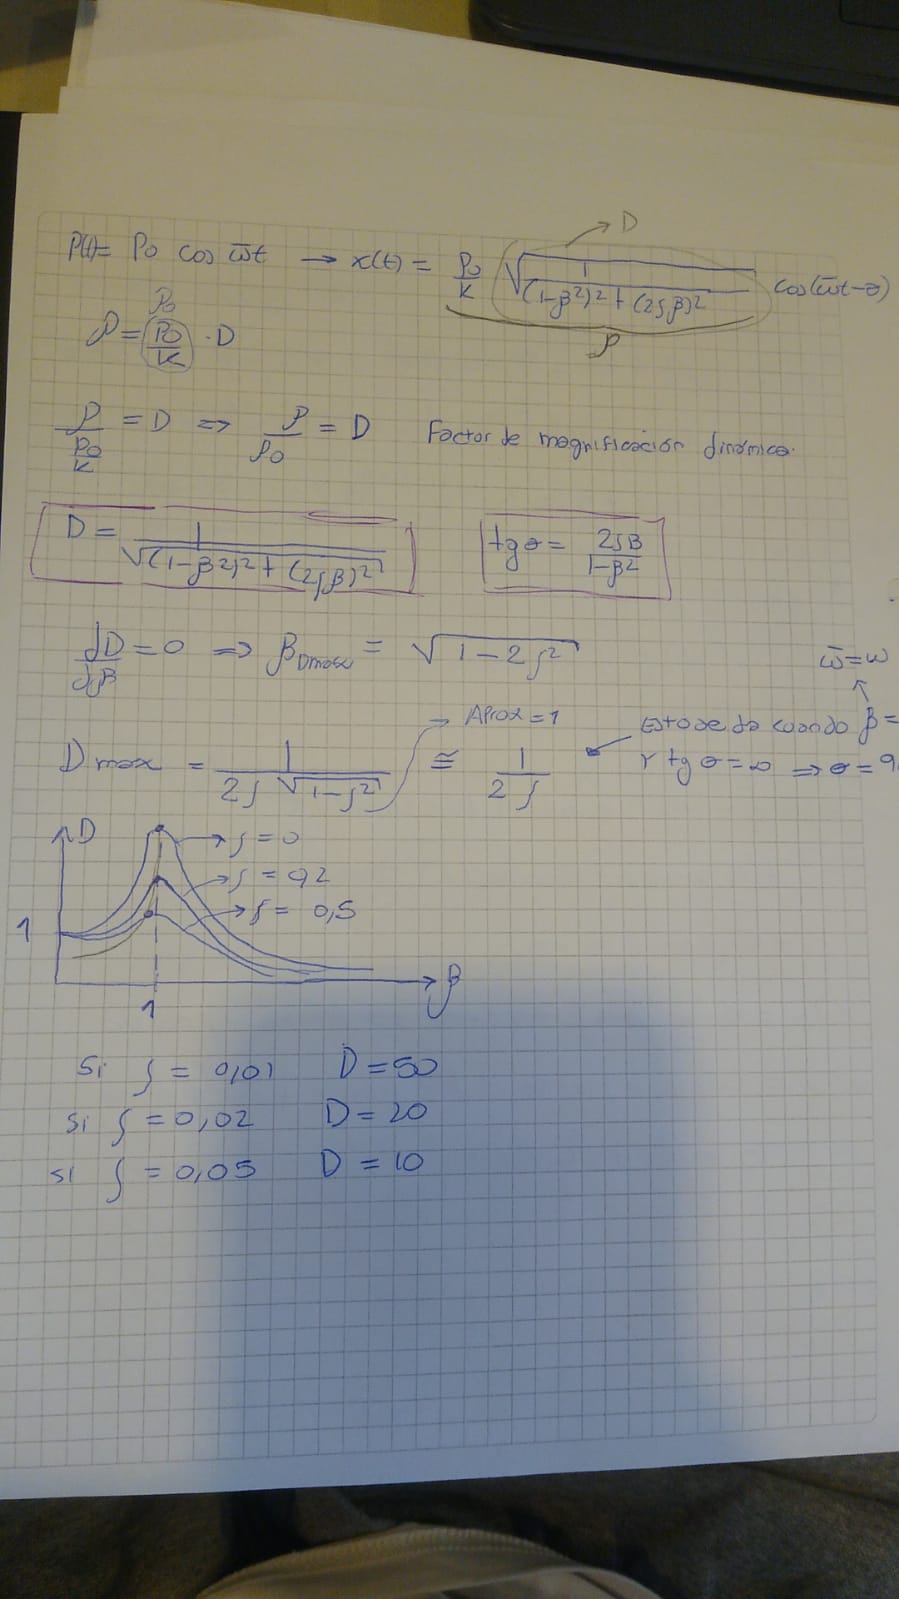 P(t)= Po cos ω̄t → x(t) = Po/K √(1/((1-β²)²+(2ζβ)²)) cos(ω̄t-θ)
→ D
ρ
ρo
ρ = (Po/K) · D
ρ/(Po/K) = D => ρ/ρo = D Factor de magnificación dinámica.
D = 1/√((1-β²)²+(2ζβ)²) tg θ = 2ζβ/(1-β²)
dD/dβ = 0 => β Dmax = √(1-2ζ²)
ω̄=ω
→ Aprox = 1
Esto se da cuando β=
D max = 1/(2ζ √(1-ζ²)) ≅ 1/(2ζ) y tg θ = ∞ => θ = 9
D
→ ζ = 0
→ ζ = 0,2
→ ζ = 0,5
1
β
1
Si ζ = 0,01 D = 50
si ζ = 0,02 D = 20
si ζ = 0,05 D = 10